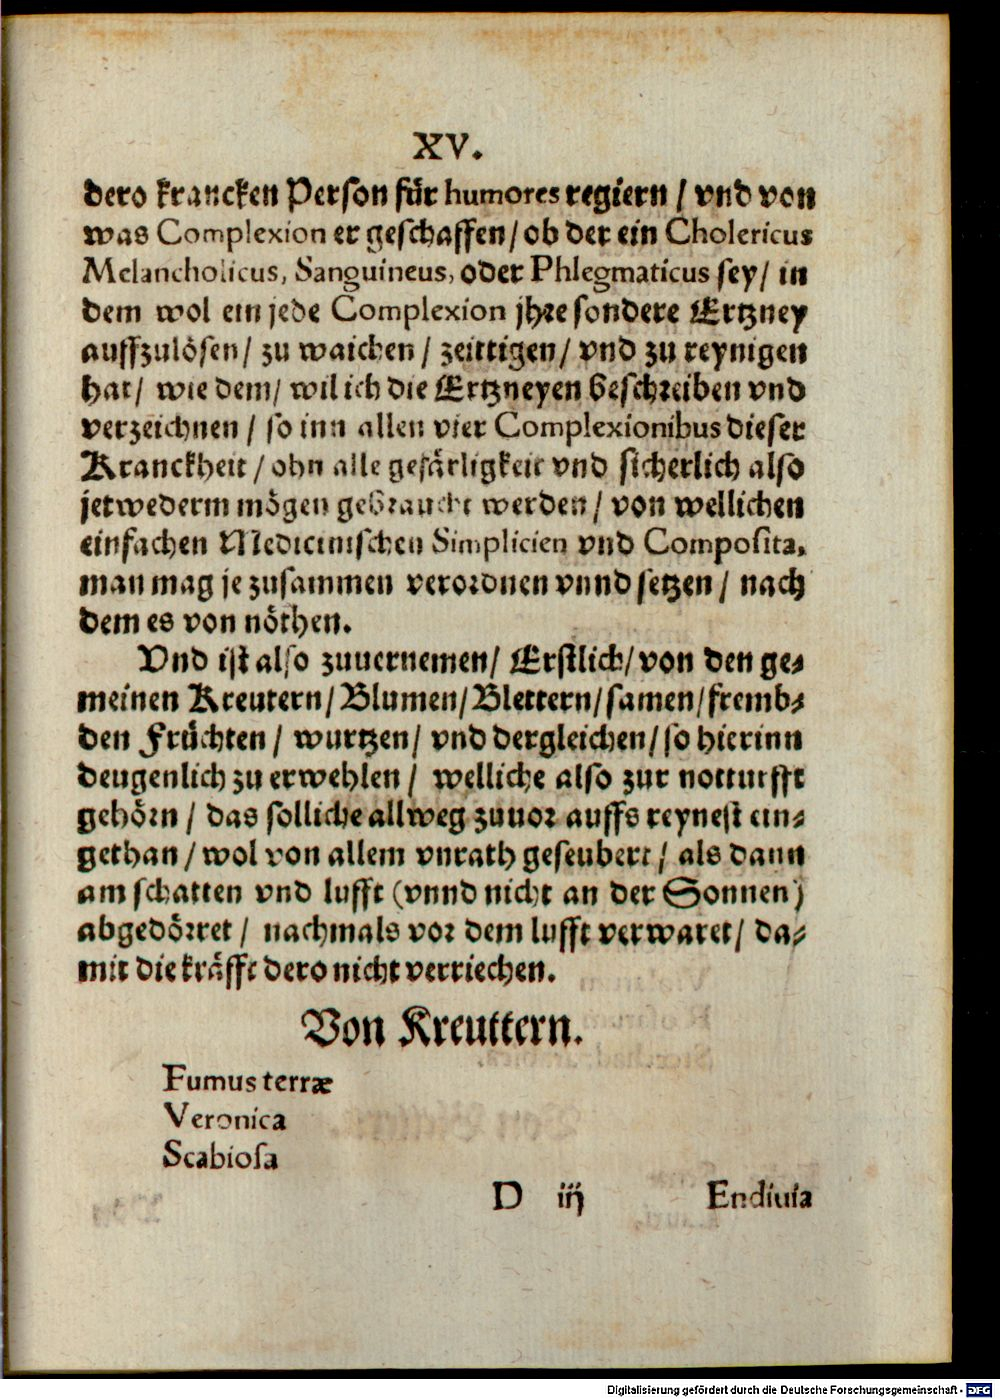 XV.
dero krancken Person für humores regiern / vnd von
was Complexion er geschaffen / ob der ein Cholericus
Melancholicus, Sanguineus, oder Phlegmaticus sey / in
dem wol ein jede Complexion jhre sondere Ertzney
auffzulösen / zu waichen / zeittigen / vnd zu reynigen
hat / wie dem / wil ich die Ertzneyen beschreiben vnd
verzeichnen / so inn allen vier Complexionibus dieser
Kranckheit / ohn alle gefärligkeit vnd sicherlich also
jetwederm mögen gebraucht werden / von wellichen
einfachen Medicinischen Simplicien vnd Composita,
man mag je zusammen verordnen vnnd setzen / nach
dem es von nöthen.
Vnd ist also zuuernemen / Erstlich / von den ge⸗
meinen Kreutern / Blumen / Blettern / samen / fremb⸗
den Früchten / wurtzen / vnd dergleichen / so hierinn
deugenlich zu erwehlen / welliche also zur notturfft
gehörn / das solliche allweg zuuor auffs reynest ein⸗
gethan / wol von allem vnrath geseubert / als dann
am schatten vnd lufft (vnnd nicht an der Sonnen)
abgedörret / nachmals vor dem lufft verwaret / da⸗
mit die kräfft dero nicht verriechen.
Von Kreuttern.
Fumus terræ
Veronica
Scabiosa
D iij Endiuia
Digitalisierung gefördert durch die Deutsche Forschungsgemeinschaft - DFG